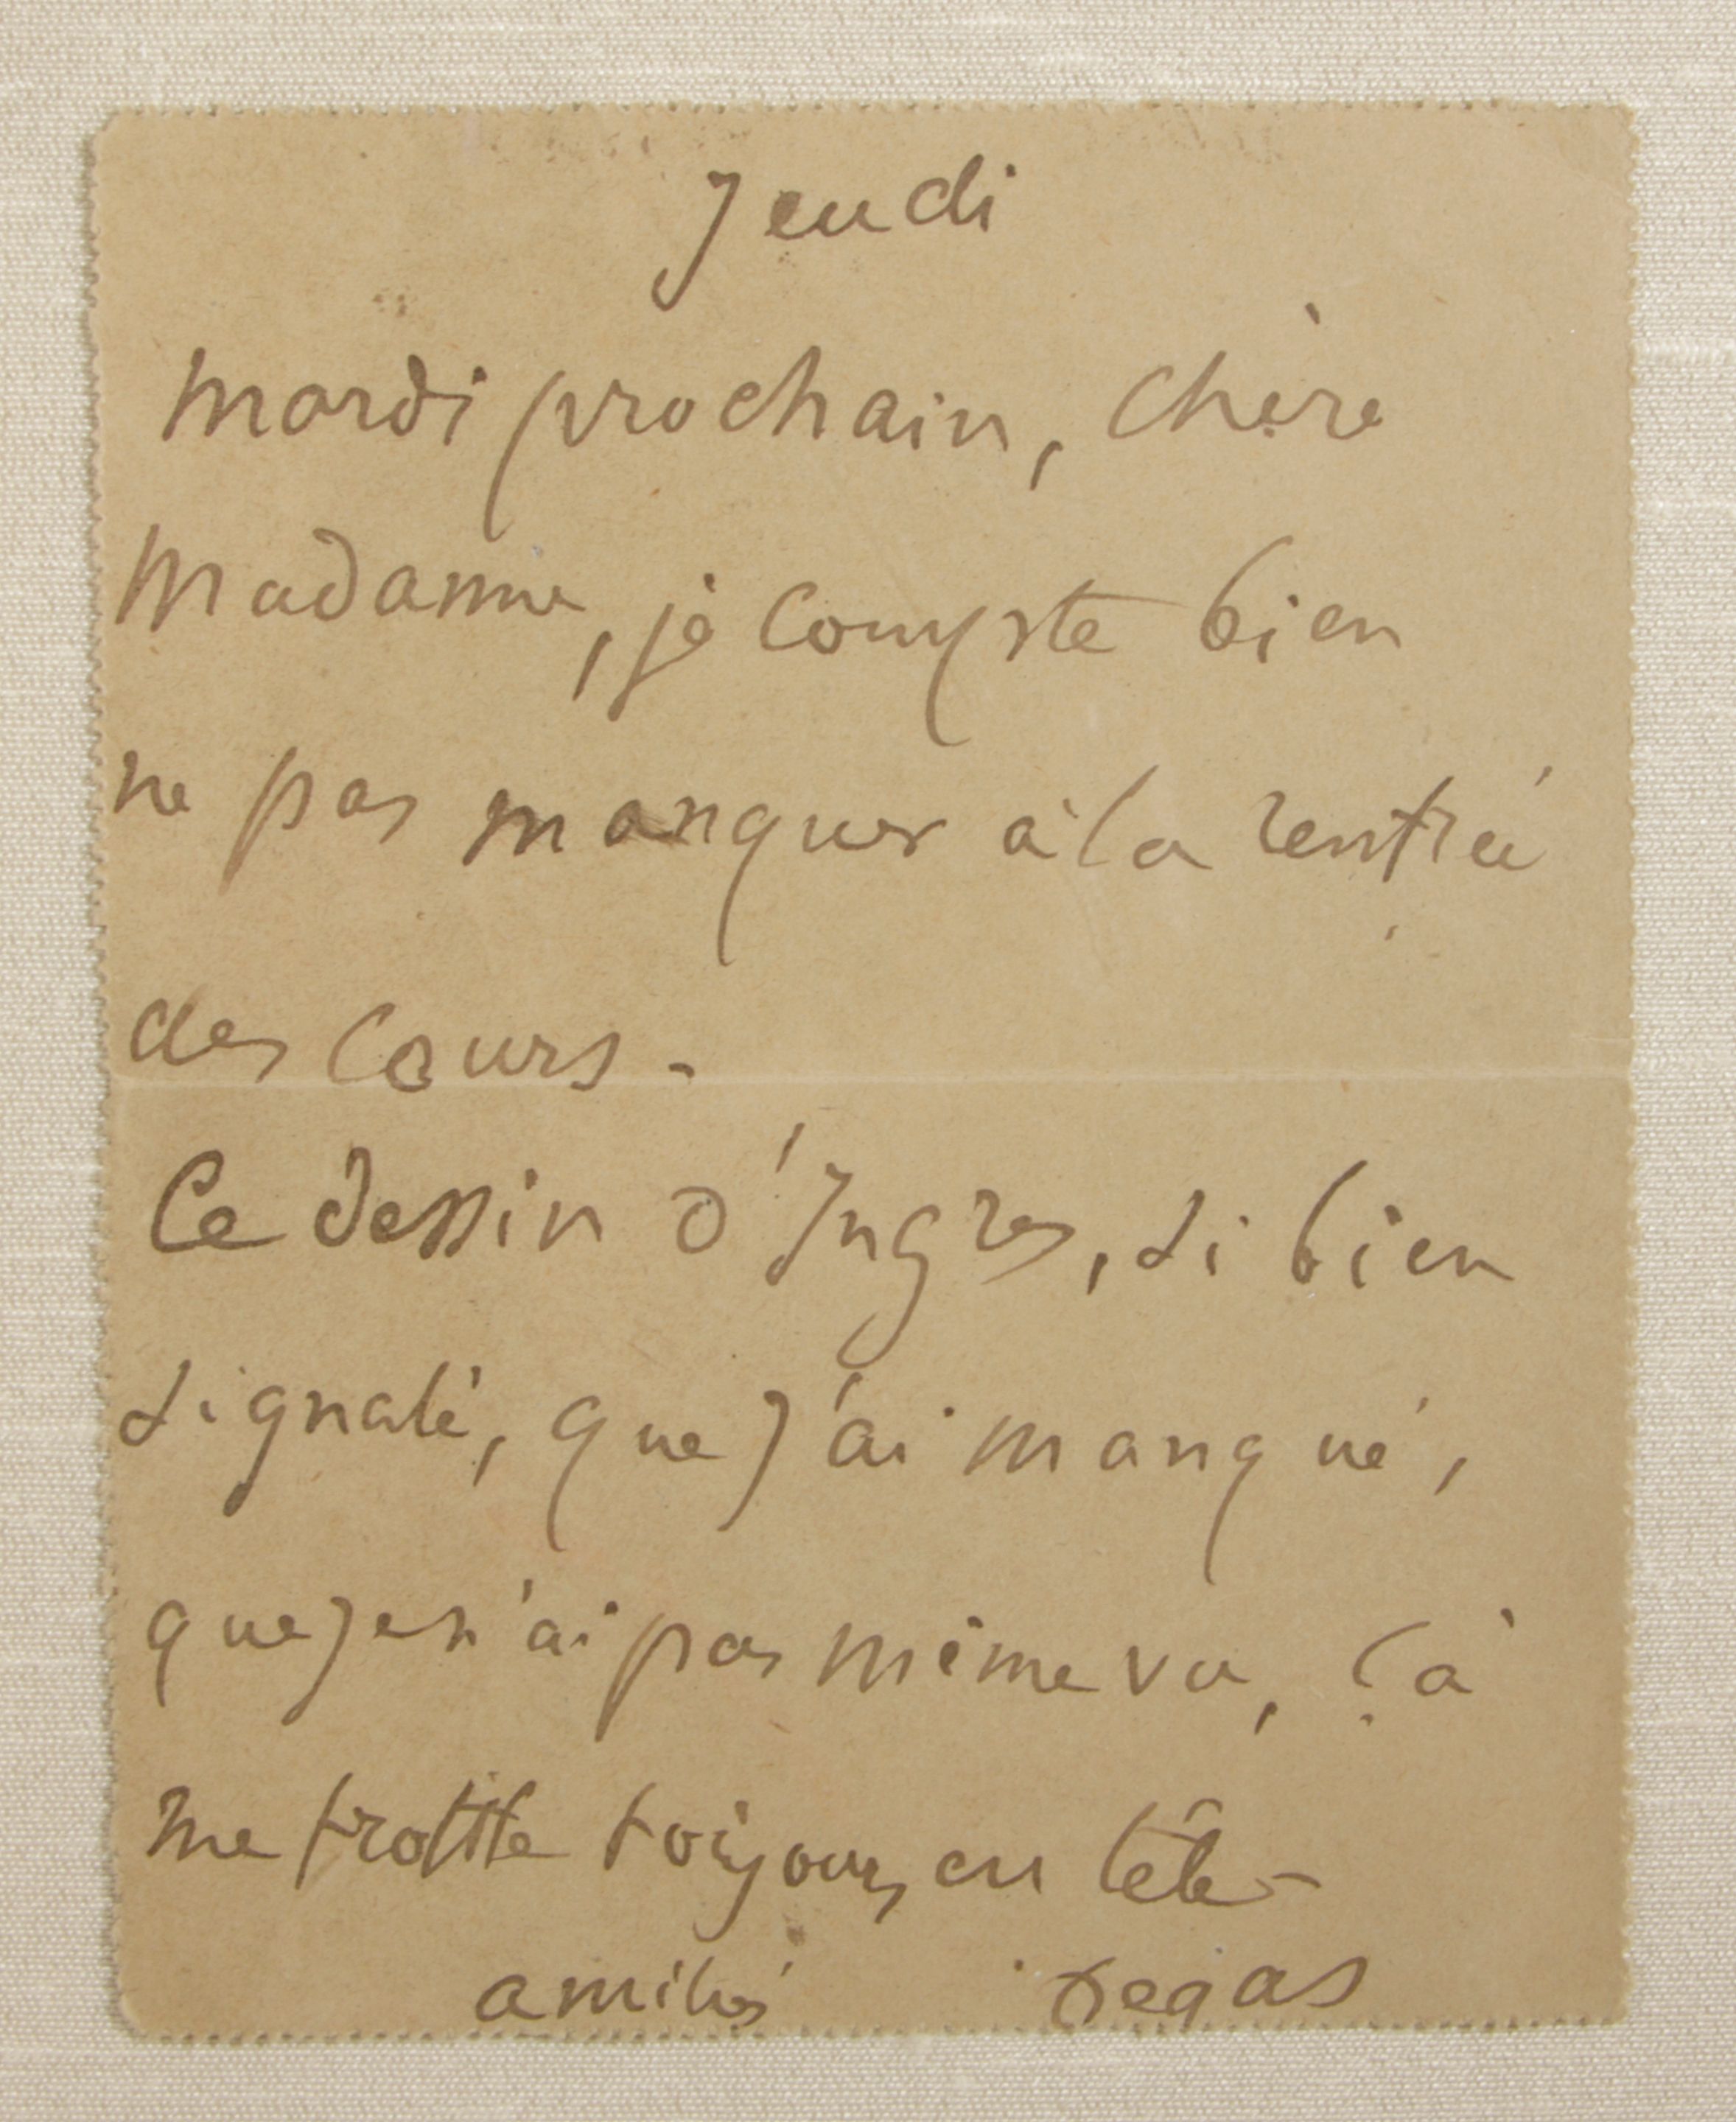 Jeudi
mardi prochain, chère
Madame, je compte bien
ne pas manquer à la rentrée
des cours -
Ce dessin d'Ingres, si bien
signalé, que j'ai manqué,
que je n'ai pas même vu, çà
me trotte toujours en tête -
amitiés Degas